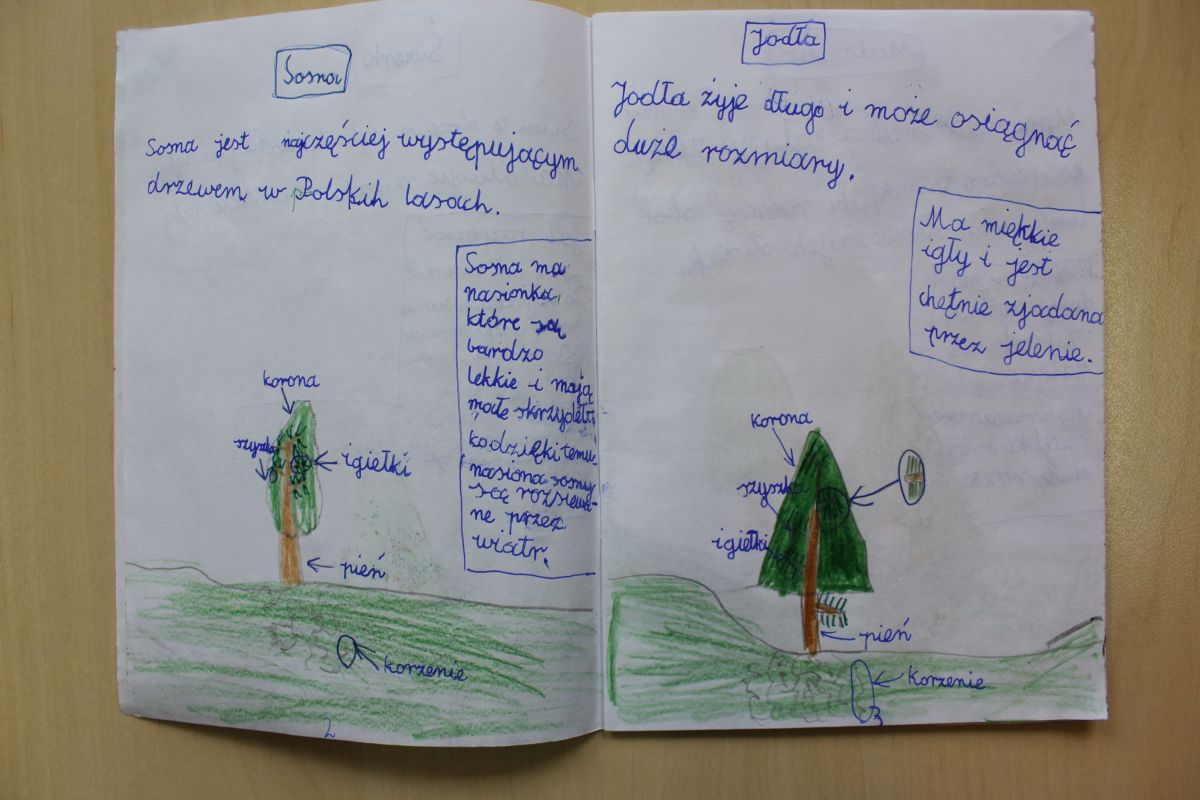 Sosna
Sosna jest najczęściej występującym
drzewem w Polskih lasach.
Sosna ma
nasionka,
które są
bardzo
lekkie i mają
małe skrzydełka
dzięki temu
nasiona sosny
są rozsiewa-
ne przez
wiatr.
korona
szyszka
igiełki
pień
korzenie
2
Jodła
Jodła żyje długo i może osiągnąć
duże rozmiary.
Ma miękkie
igły i jest
chętnie zjadana
przez jelenie.
korona
szyszka
igiełki
pień
korzenie
3